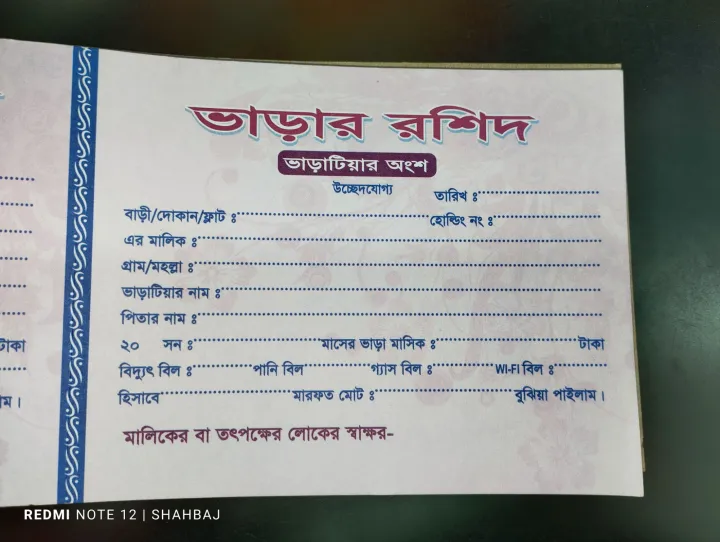 ভাড়ার রশিদ
ভাড়াটিয়ার অংশ
উচ্ছেদযোগ্য
তারিখ ঃ
বাড়ী/দোকান/ফ্লাট ঃ হোল্ডিং নং ঃ
এর মালিক ঃ
গ্রাম/মহল্লা ঃ
ভাড়াটিয়ার নাম ঃ
পিতার নাম ঃ
২০ সন ঃ মাসের ভাড়া মাসিক ঃ টাকা
বিদ্যুৎ বিল ঃ পানি বিল গ্যাস বিল ঃ WI-FI বিল ঃ
হিসাবে মারফত মোট ঃ বুঝিয়া পাইলাম।
মালিকের বা তৎপক্ষের লোকের স্বাক্ষর-
টাকা
ম।
REDMI NOTE 12 | SHAHBAJ